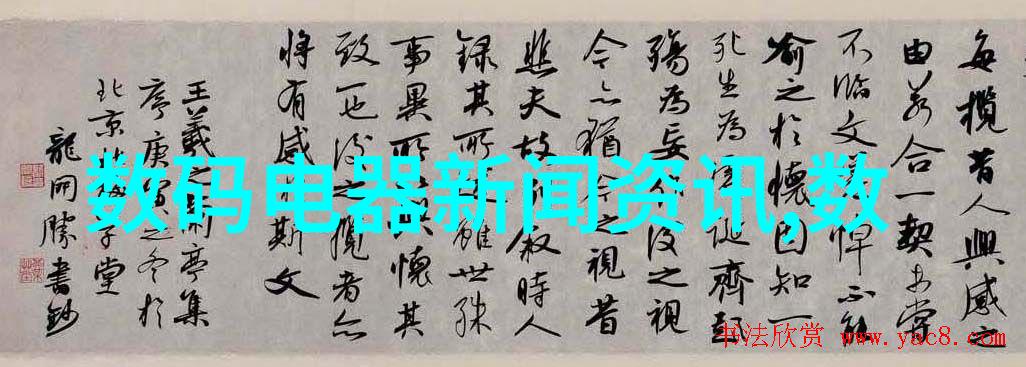 每攬昔人興感之
由若合一契未嘗
不臨文嗟悼不能
喻之於懷固知一
死生為虛誕齊彭
殤為妄作後之視
今亦猶今之視昔
悲夫故列叙時人
錄其所雖世殊
事異所以懷其
致一也後之攬者亦
將有感於斯文
王羲之蘭亭集
序庚寅之冬於
北京子堂
龍開勝書鈔
数码电器新闻资讯,数
书法欣赏
www.yac8.com